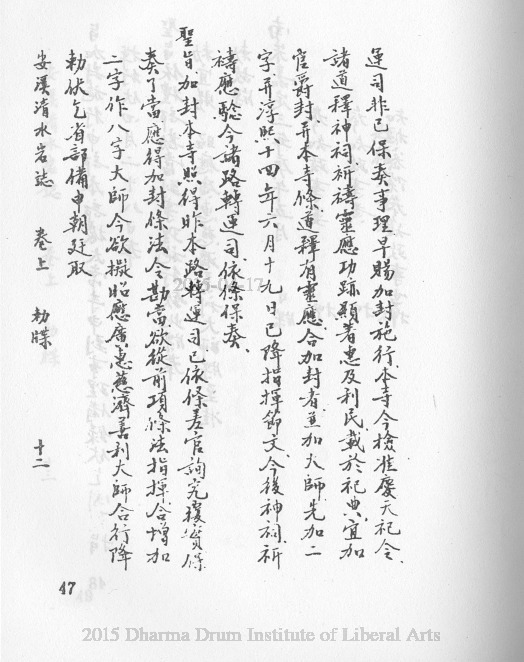 運司非已保奏事理早賜加封施行本寺今檢准慶元祀令、
諸道釋神祠祈禱靈應功跡顯著惠及利民載於祀典宜加
官爵封、并本寺條道釋有靈應合加封者並加大師先加二
字、并淳熙十四年六月十九日已降指揮節文、今後神祠祈
禱應驗、令諸路轉運司、依條保奏、
聖旨加封本寺照得昨本路轉運司已依條差官詢究覆實保
奏了當應得加封條法令勘當欲從前項條法指揮合增加
二字作八字大師今欲擬昭應廣惠慈濟善利大師合行降
勅伏乞省部備申朝廷取
安溪清水岩誌 卷上 勅牒 十二
47
2015 Dharma Drum Institute of Liberal Arts